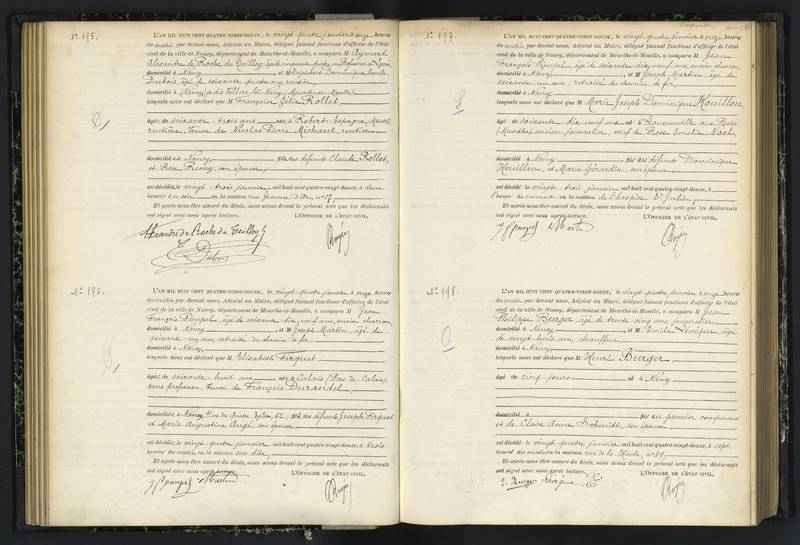 Nº 195.
L'AN MIL HUIT CENT QUATRE-VINGT-DOUZE, le vingt quatre janvier à onze heures
du matin, par devant nous, Adjoint au Maire, délégué faisant fonctions d'officier de l'état
civil de la ville de Nancy, département de Meurthe-et-Moselle, a comparu M
Alexandre de Roche du Teilloy, âgé de cinquante quatre ans Professeur au Lycée,
domicilié à Nancy, et M Dominique Emile
Dubois, âgé de soixante quatre ans rentier,
domicilié à (Nancy) à dit Villers-lès-Nancy (Meurthe-et-Moselle)
lesquels nous ont déclaré que M Françoise Zélie Rollet,
âgée de soixante trois ans née à Robert-Espagne (Meuse)
rentière, Veuve de Nicolas Pierre Michaut, rentier
domiciliée à Nancy, fille des défunts Claude Rollet,
et Rose Remy, son épouse,
est décédée le vingt trois janvier mil huit cent quatre-vingt-douze, à deux
heures du soir en la maison rue Jeanne d'Arc, nº 17,
Et après nous être assuré du décès, nous avons dressé le présent acte que les déclarants
ont signé avec nous après lecture. L'OFFICIER DE L'ÉTAT CIVIL,
Alexandre de Roche du Teilloy
E. Dubois
Nº 196.
L'AN MIL HUIT CENT QUATRE-VINGT-DOUZE, le vingt quatre janvier à onze heures
du matin, par devant nous, Adjoint au Maire, délégué faisant fonctions d'officier de l'état
civil de la ville de Nancy, département de Meurthe-et-Moselle, a comparu M Jean
François Pimpel, âgé de soixante dix neuf ans, ancien charron,
domicilié à Nancy, et M Joseph Martin, âgé de
soixante un ans, retraité du chemin de fer
domicilié à Nancy,
lesquels nous ont déclaré que M Elisabeth Firquet
âgée de soixante huit ans née à Calais (Pas de Calais)
sans profession, Veuve de François Durandel,
domiciliée à Nancy Rue des Quatre Eglises, 62, fille des défunts Joseph Firquet
et Marie Augustine Augé, son épouse,
est décédée le vingt quatre janvier mil huit cent quatre-vingt-douze, à trois
heures du matin en la maison sus dite,
Et après nous être assuré du décès, nous avons dressé le présent acte que les déclarants
ont signé avec nous après lecture. L'OFFICIER DE L'ÉTAT CIVIL,
Martin
Nº 197.
L'AN MIL HUIT CENT QUATRE-VINGT-DOUZE, le vingt quatre janvier à onze heures
du matin, par devant nous, Adjoint au Maire, délégué faisant fonctions d'officier de l'état
civil de la ville de Nancy, département de Meurthe-et-Moselle, a comparu M Jean
François Pimpel, âgé de soixante dix neuf ans, ancien charron
domicilié à Nancy, et M Joseph Martin, âgé de
soixante un ans, retraité du chemin de fer
domicilié à Nancy,
lesquels nous ont déclaré que M Marie Joseph Dominique Houillon,
âgé de soixante dix neuf ans né à Laneuveville aux Bois
(Meurthe) ancien journalier, veuf de Rose Emélie Noël,
domicilié à Nancy fils des défunts Dominique
Houillon, et Marie Gérardin, son épouse
est décédé le vingt trois janvier mil huit cent quatre-vingt-douze, à
heure de minuit en la maison de l'hospice St Julien,
Et après nous être assuré du décès, nous avons dressé le présent acte que les déclarants
ont signé avec nous après lecture. L'OFFICIER DE L'ÉTAT CIVIL,
Martin
Nº 198.
L'AN MIL HUIT CENT QUATRE-VINGT-DOUZE, le vingt quatre janvier à onze heures
du matin, par devant nous, Adjoint au Maire, délégué faisant fonctions d'officier de l'état
civil de la ville de Nancy, département de Meurthe-et-Moselle, a comparu M Jean
Philippe Burger, âgé de trente cinq ans, journalier
domicilié à Nancy, et M Emile Lévêque, âgé
de vingt huit ans, chauffeur,
domicilié à Nancy,
lesquels nous ont déclaré que M Henri Burger
âgé de cinq jours né à Nancy
domicilié à fils du premier comparant
et de Claire Anne Schmitt, son épouse
est décédé le vingt quatre janvier mil huit cent quatre-vingt-douze, à sept
heures du matin en la maison rue de la Hache, nº 59,
Et après nous être assuré du décès, nous avons dressé le présent acte que les déclarants
ont signé avec nous après lecture. L'OFFICIER DE L'ÉTAT CIVIL,
J. Burger Lévêque E